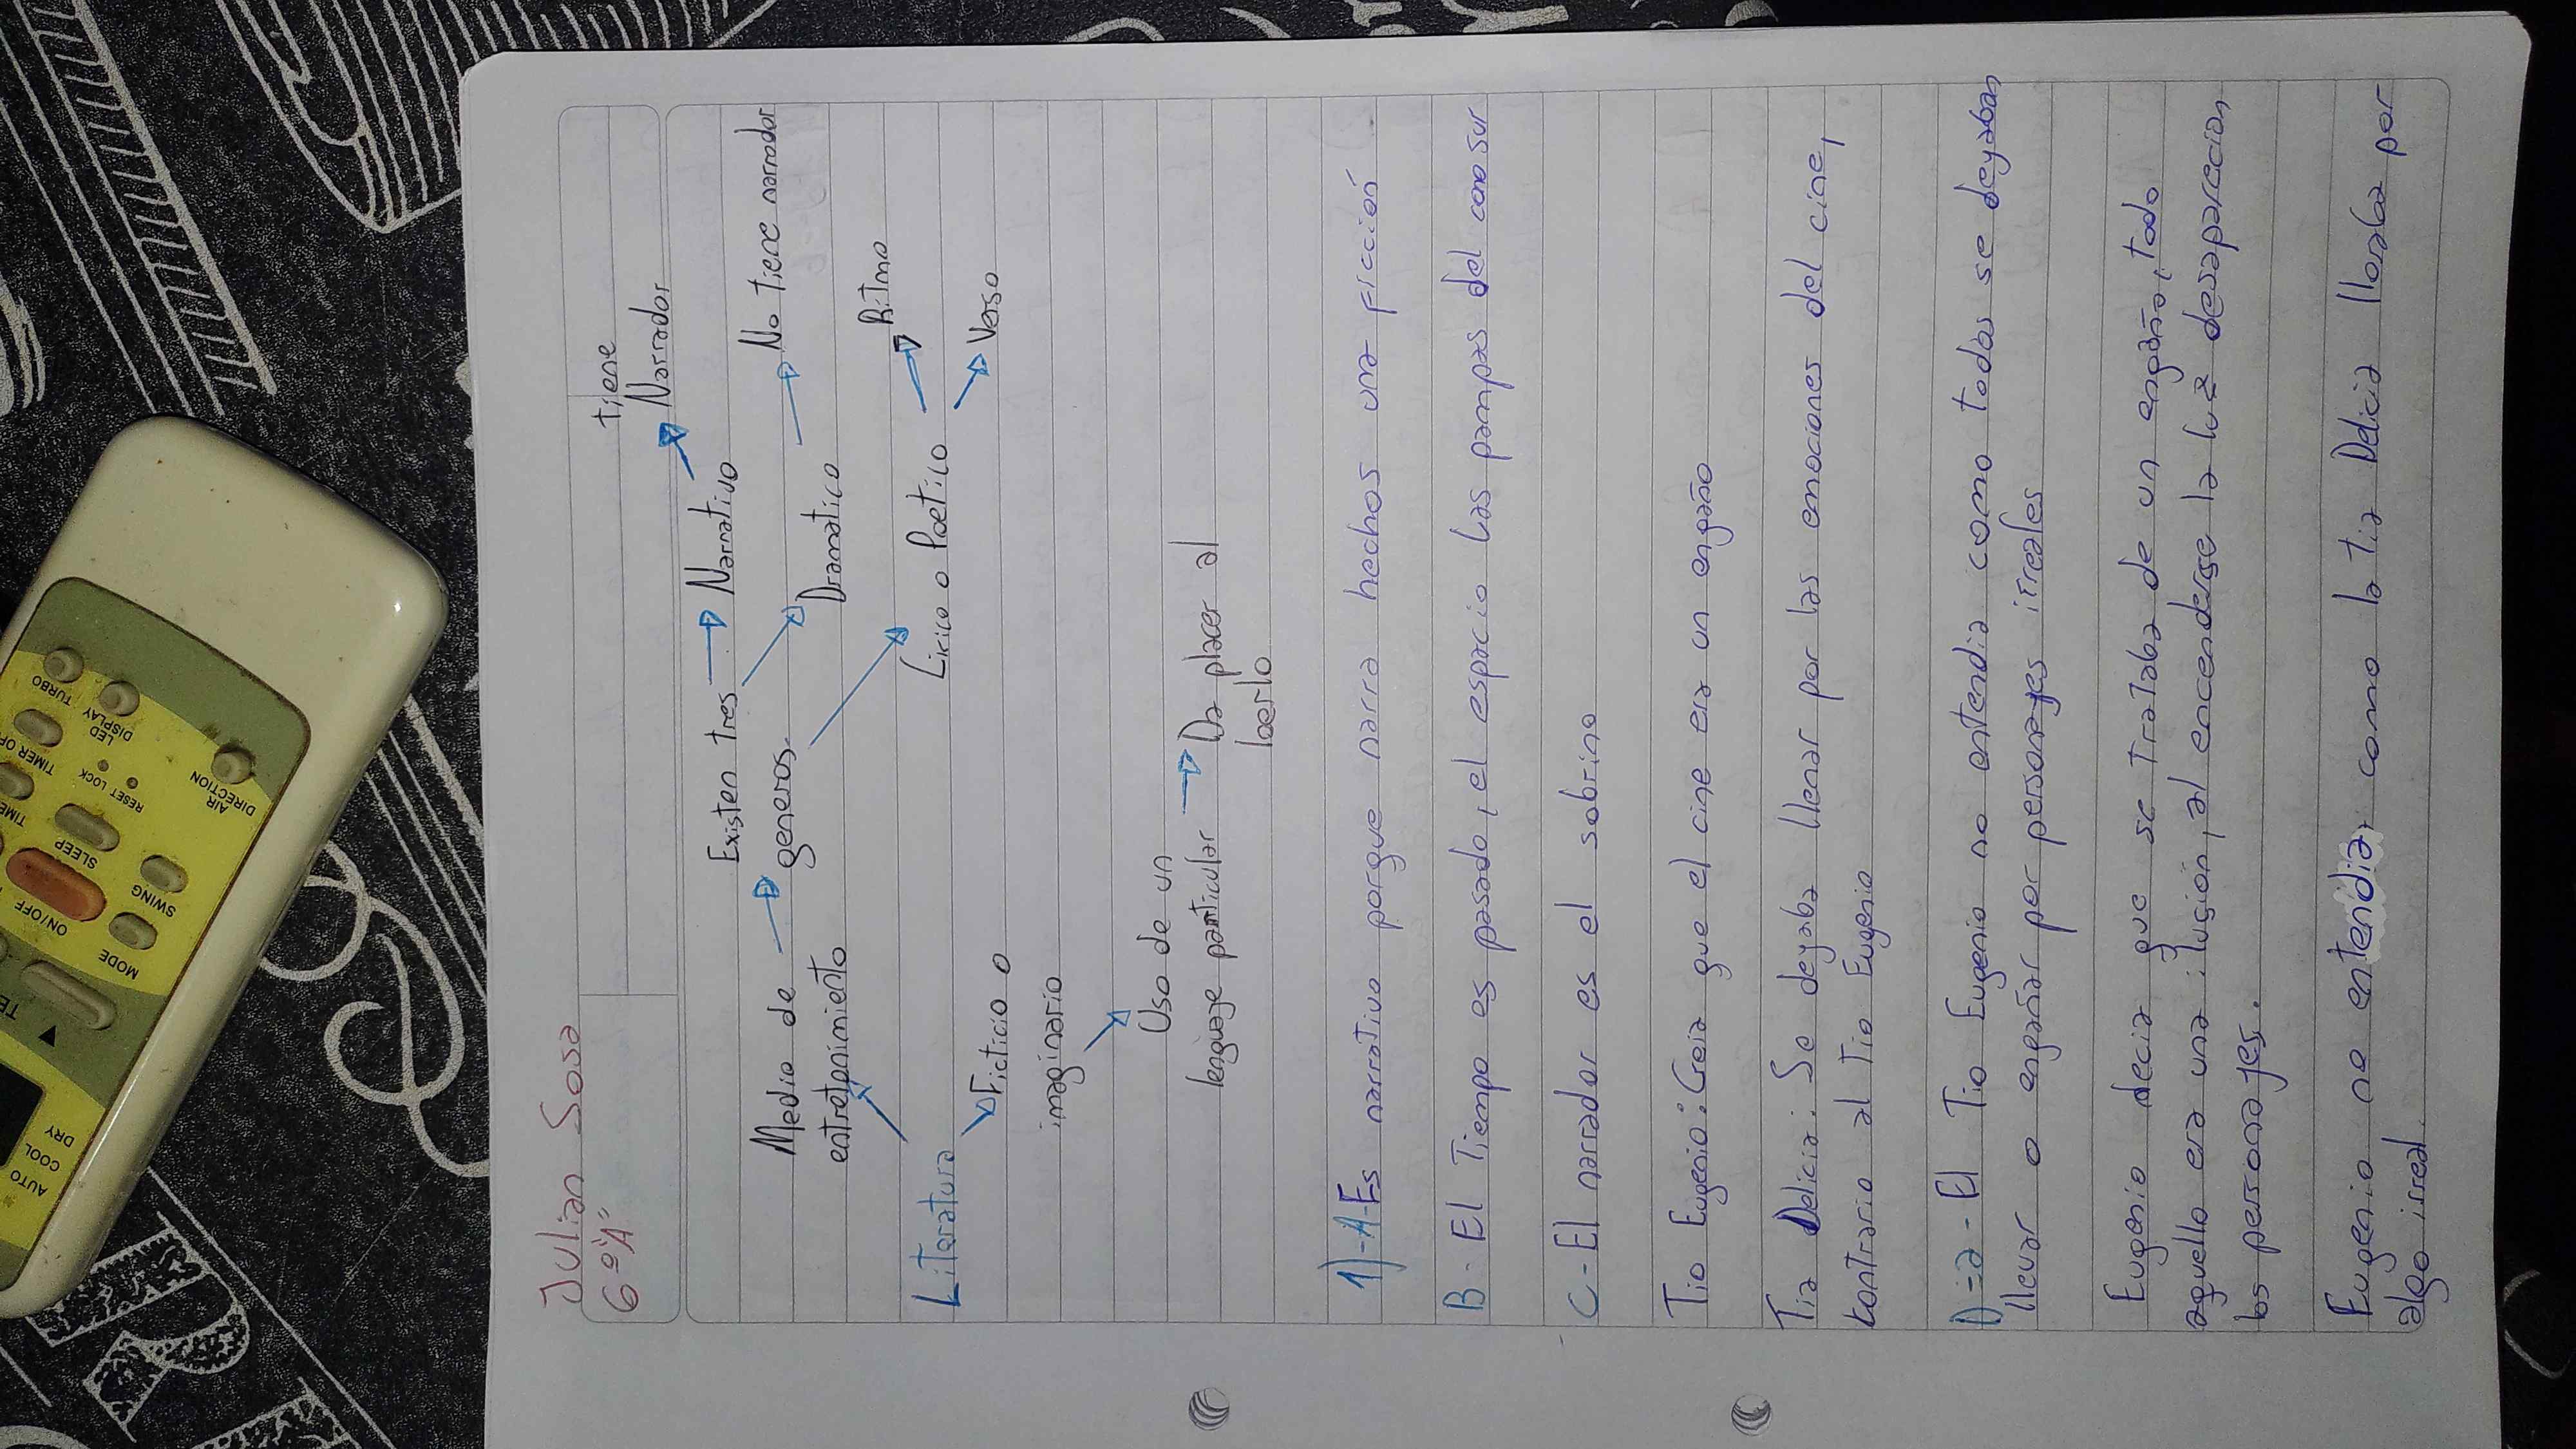 Julian Sosa
6º"A"
tiene
Narrador
Existen tres
Narrativo
generos.
Medio de
entratenimiento
No tiene narrador
Dramatico
Ritmo
Lirico o Poetico
Verso
Literatura
Ficticio o
imaginario
Uso de un
lenguaje particular
Da placer al
leerlo
1)-A-Es narrativo porque narra hechos una ficción
B- El Tiempo es pasado, el espacio Las pampas del cono sur
C-El narrador es el sobrino
Tio Eugenio: Creia que el cine era un engaño
Tia Delicia: Se deyaba llenar por las emociones del cine,
contrario al Tio Eugenio
D-a- El Tio Eugenio no entendia como todos se deyaban
llevar o engañar por personayes irreales
Eugenio decia que se trataba de un engaño, todo
aquello era una ilusión, al encenderse la luz desaparecian
los personayes.
Eugenio no entendia como la tia Delicia lloraba por
algo irreal.
AUTO
COOL
DRY
TE
MODE
ON/OFF
SWING
SLEEP
TIME
RESET
LOCK
AIR
DIRECTION
TIMER OF
LED
DISPLAY
TURBO